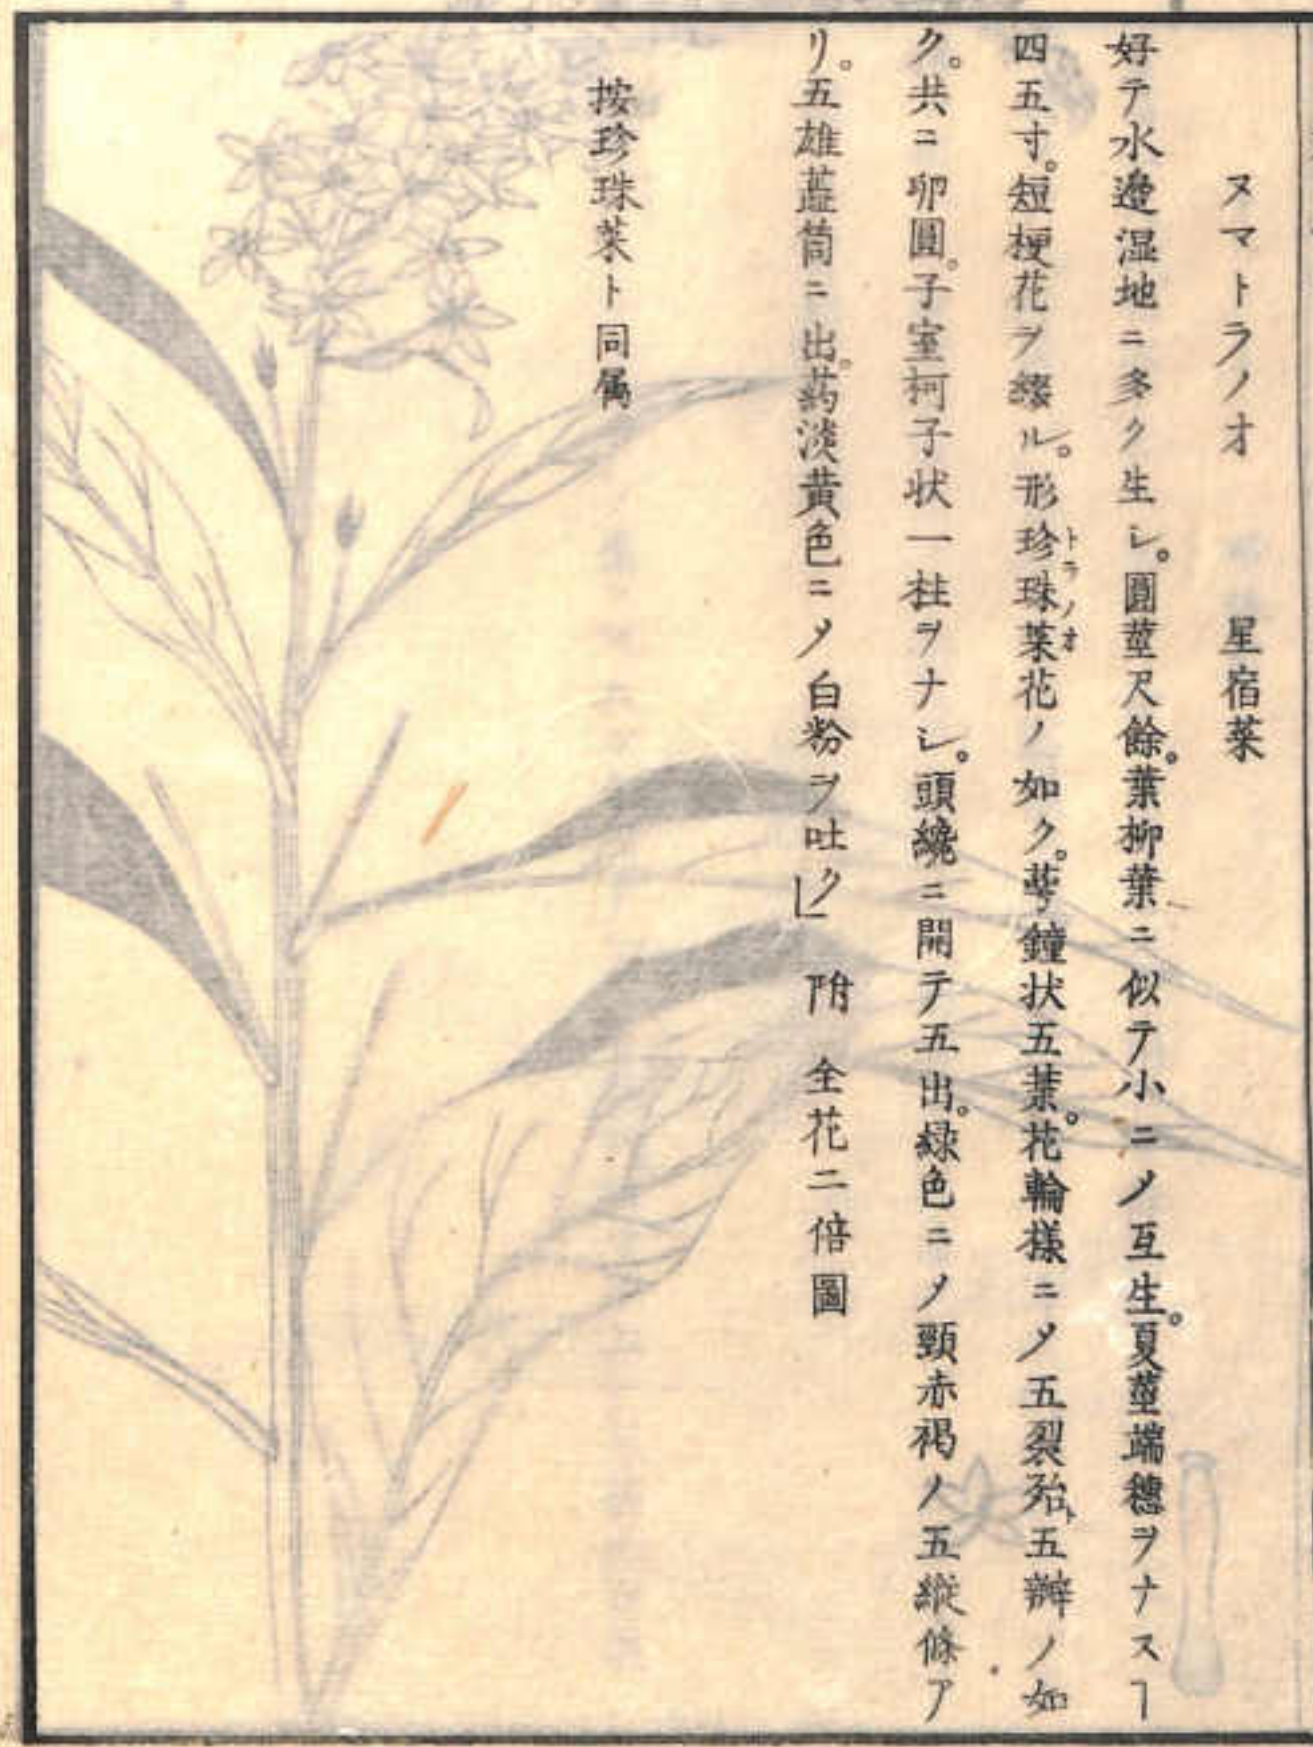 ヌマトラノオ　星宿菜
好テ水邉湿地ニ多ク生シ。圓莖尺餘。葉柳葉ニ似テ小ニ〆互生。夏莖端穗ヲナスヿ
四五寸。短梗花ヲ綴ル。形珍珠菜花ノ如ク。萼鐘状五葉。花輪様ニ〆五裂殆ト五瓣ノ如
トラノオ
ク。共ニ卵圓。子室柯子状一柱ヲナシ。頭纔ニ開テ五出。緑色ニ〆頸赤褐ノ五縦條ア
リ。五雄蕋筒ニ出。葯淡黄色ニ〆白粉ヲ吐ク」　附　全花二倍圖
按珍珠菜ト同属